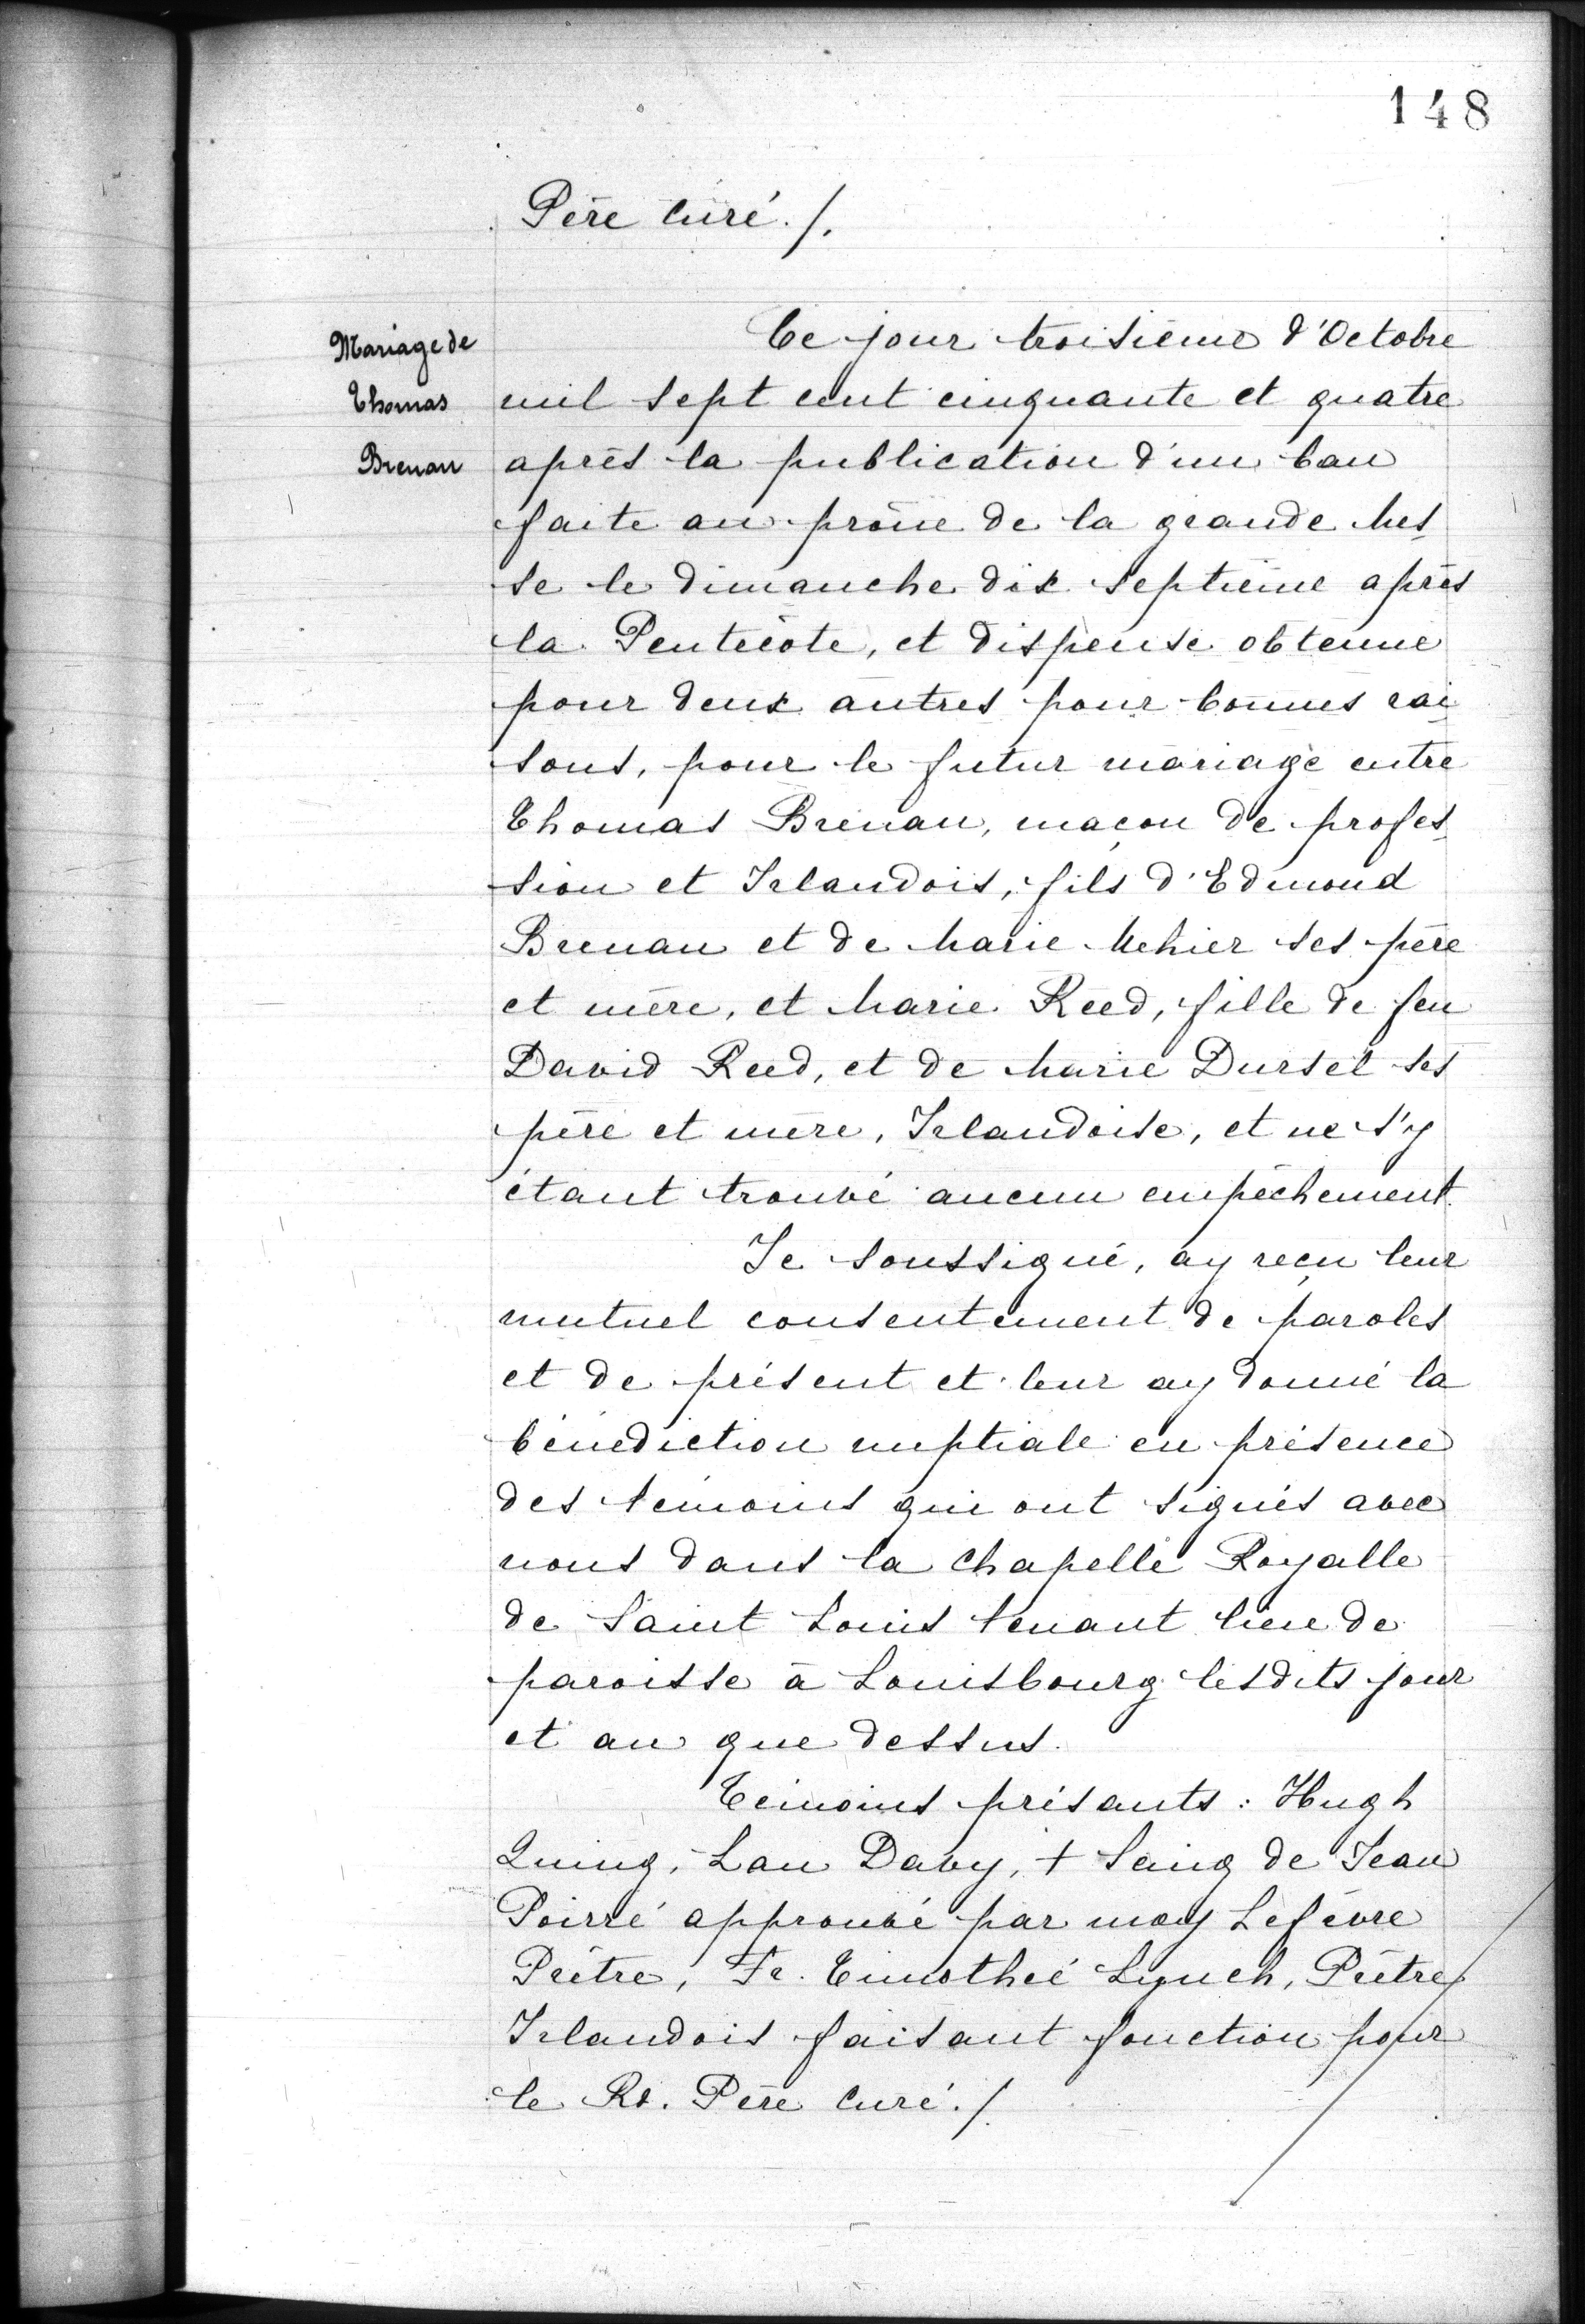 148
Père Curé./.
Mariage de
Thomas
Brenan
Ce jour troisième d'Octobre
mil sept cent cinquante et quatre
après la publication d'un ban
faite au prône de la grande Mes-
se le dimanche dix septième après
la Pentecôte, et dispense obtenue
pour deux autres pour bonnes rai-
sons, pour le futur mariage entre
Thomas Brenan, maçon de profes-
sion et Irlandois, fils d'Edmond
Brenan et de Marie Mehier ses père
et mère, et Marie Reed, fille de feu
David Reed, et de Marie Dursel ses
père et mère, Irlandoise, et ne s'y
étant trouvé aucun empêchement.
Je soussigné, ay reçu leur
mutuel consentement de paroles
et de présent et leur ay donné la
bénédiction nuptiale en présence
des témoins qui ont signés avec
nous dans la Chapelle Royalle
de Saint Louis tenant lieu de
paroisse à Louisbourg lesdits jour
et an que dessus.
Témoins présants : Hugh
Quing, Lau Davy, + Seing de Jean
Poirré approuvé par moy Lefèvre
Prêtre, Fr. Timotheé Lynch, Prêtre
Irlandois faisant fonction pour
le Rd. Père Curé./.